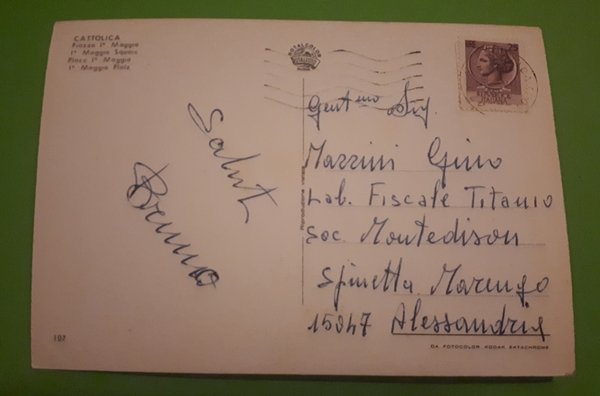 CATTOLICA
Piazza 1° Maggio
1° Maggio Square
Place 1° Maggio
1° Maggio Platz
ROTALCOLOR
25
Saluti
Bruno
Gent.mo Sig.
Mazzini Gino
Lab. Fiscale Titanio
Soc. Montedison
Spinetta Marengo
15047 Alessandria
107
DA FOTOCOLOR KODAK EKTACHROME